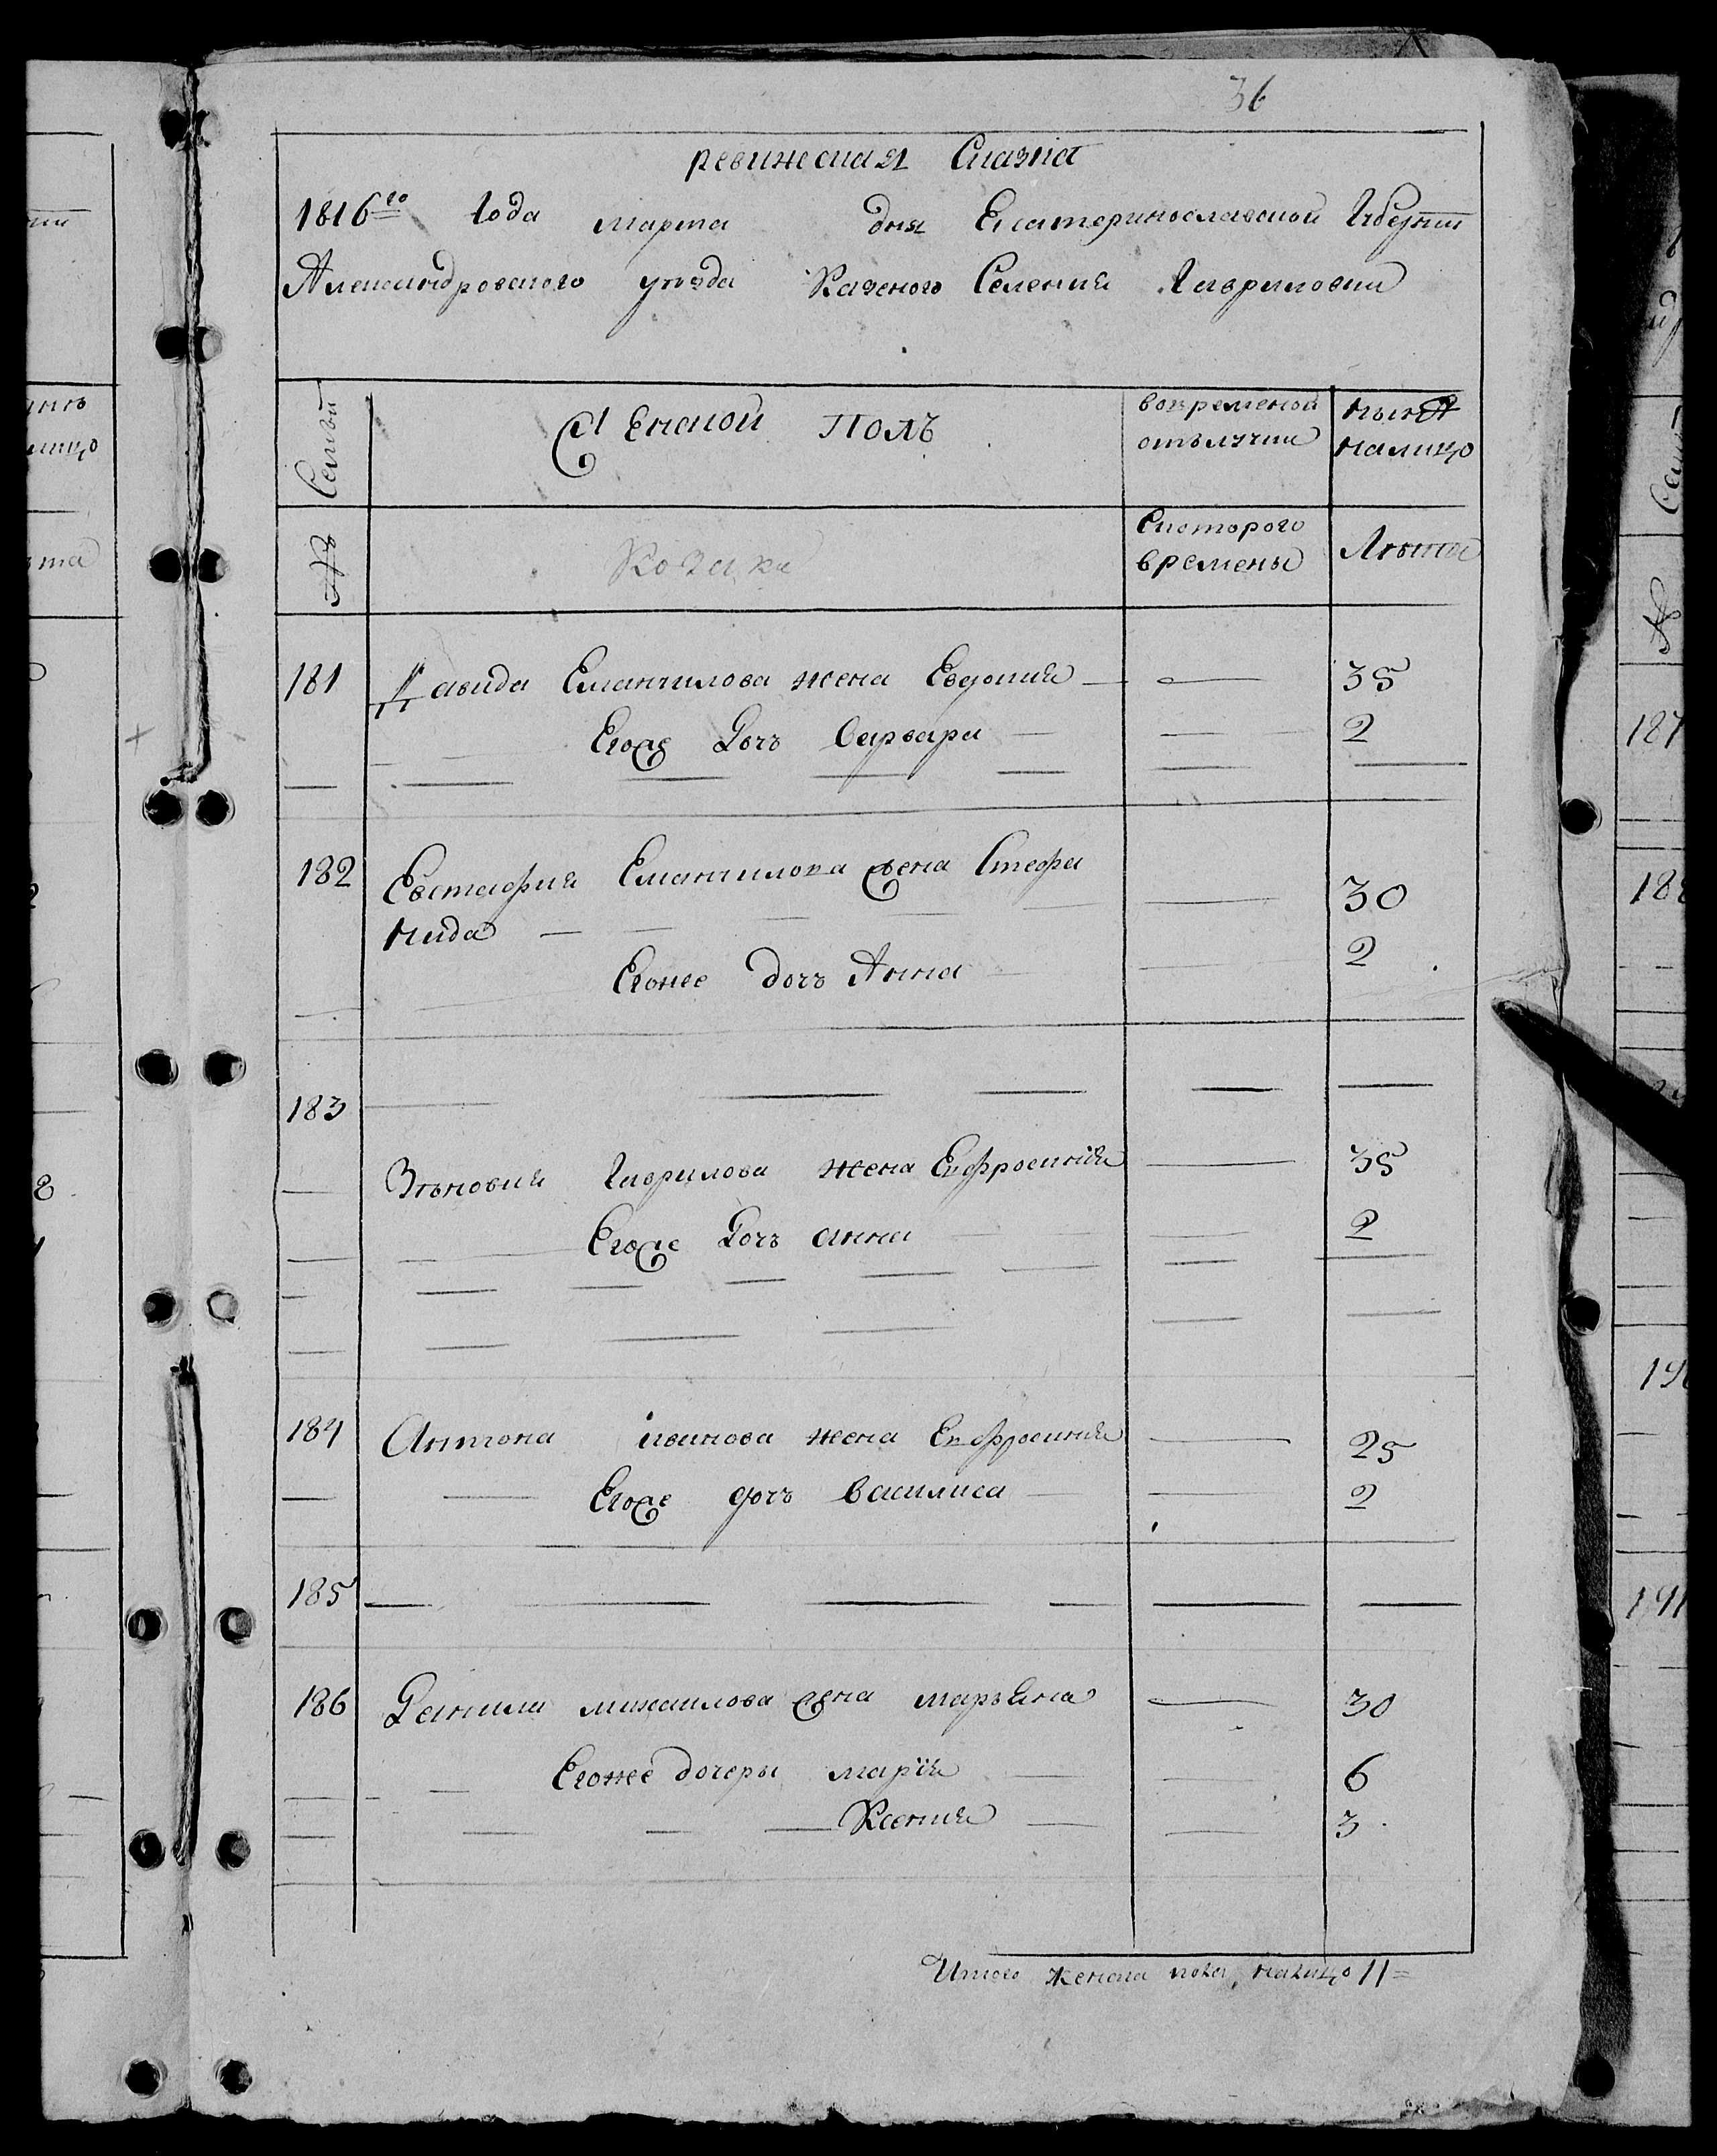 36
ревижская Сказка
1816го Года марта дня Екатеринославской Губернии
Александровского уезда Казеного Селения Гавриловки
Семьи
Женской полъ
вовременой
отълучки
ныне
налицо
№
Козаки
Скоторого
времены
Лѣты
181 Давида Емануилова жена Евдокия — — 35
Егоже Дочъ варвара — — 2
182 Евстафия Емануилова жена Стефа
нида — — 30
Егоже дочъ Анна — 2
183
Зѣновия Гаврилова жена Ефросиния — 35
Егоже Дочъ анна — 2
184 Антона иванова жена Ефросиния — 25
Егоже дочъ василиса — 2
185 —
186 Данила михаилова жена марьяна — 30
Егоже дочеры мария — 6
Ксения — 3
Итого женска пола налицо 11=
187
188
191